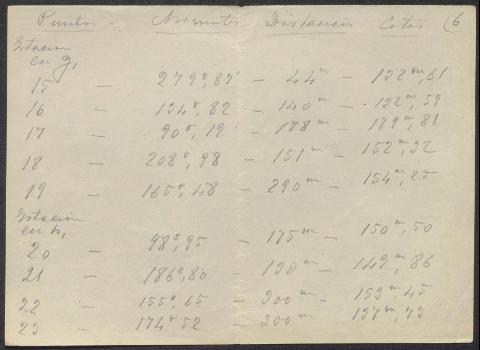 Puntos - Azimutes Distancias Cotas (6
Estacion
en g,
15 - 279°,87' - 44m - 132m,61
16 - 134°,82 - 140m - 132m,59
17 - 90°,19' - 178m - 179m,81
18 - 208°,98 - 151m - 152m,32
19 - 165°,48 - 290m - 154m,25
Estacion
en h,
20 - 98°,95 - 175m - 150m,50
21 - 186°,80 - 190m - 149m,86
22 - 155°,65 - 300m - 153m,45
23 - 174°52 - 300m - 137m,73